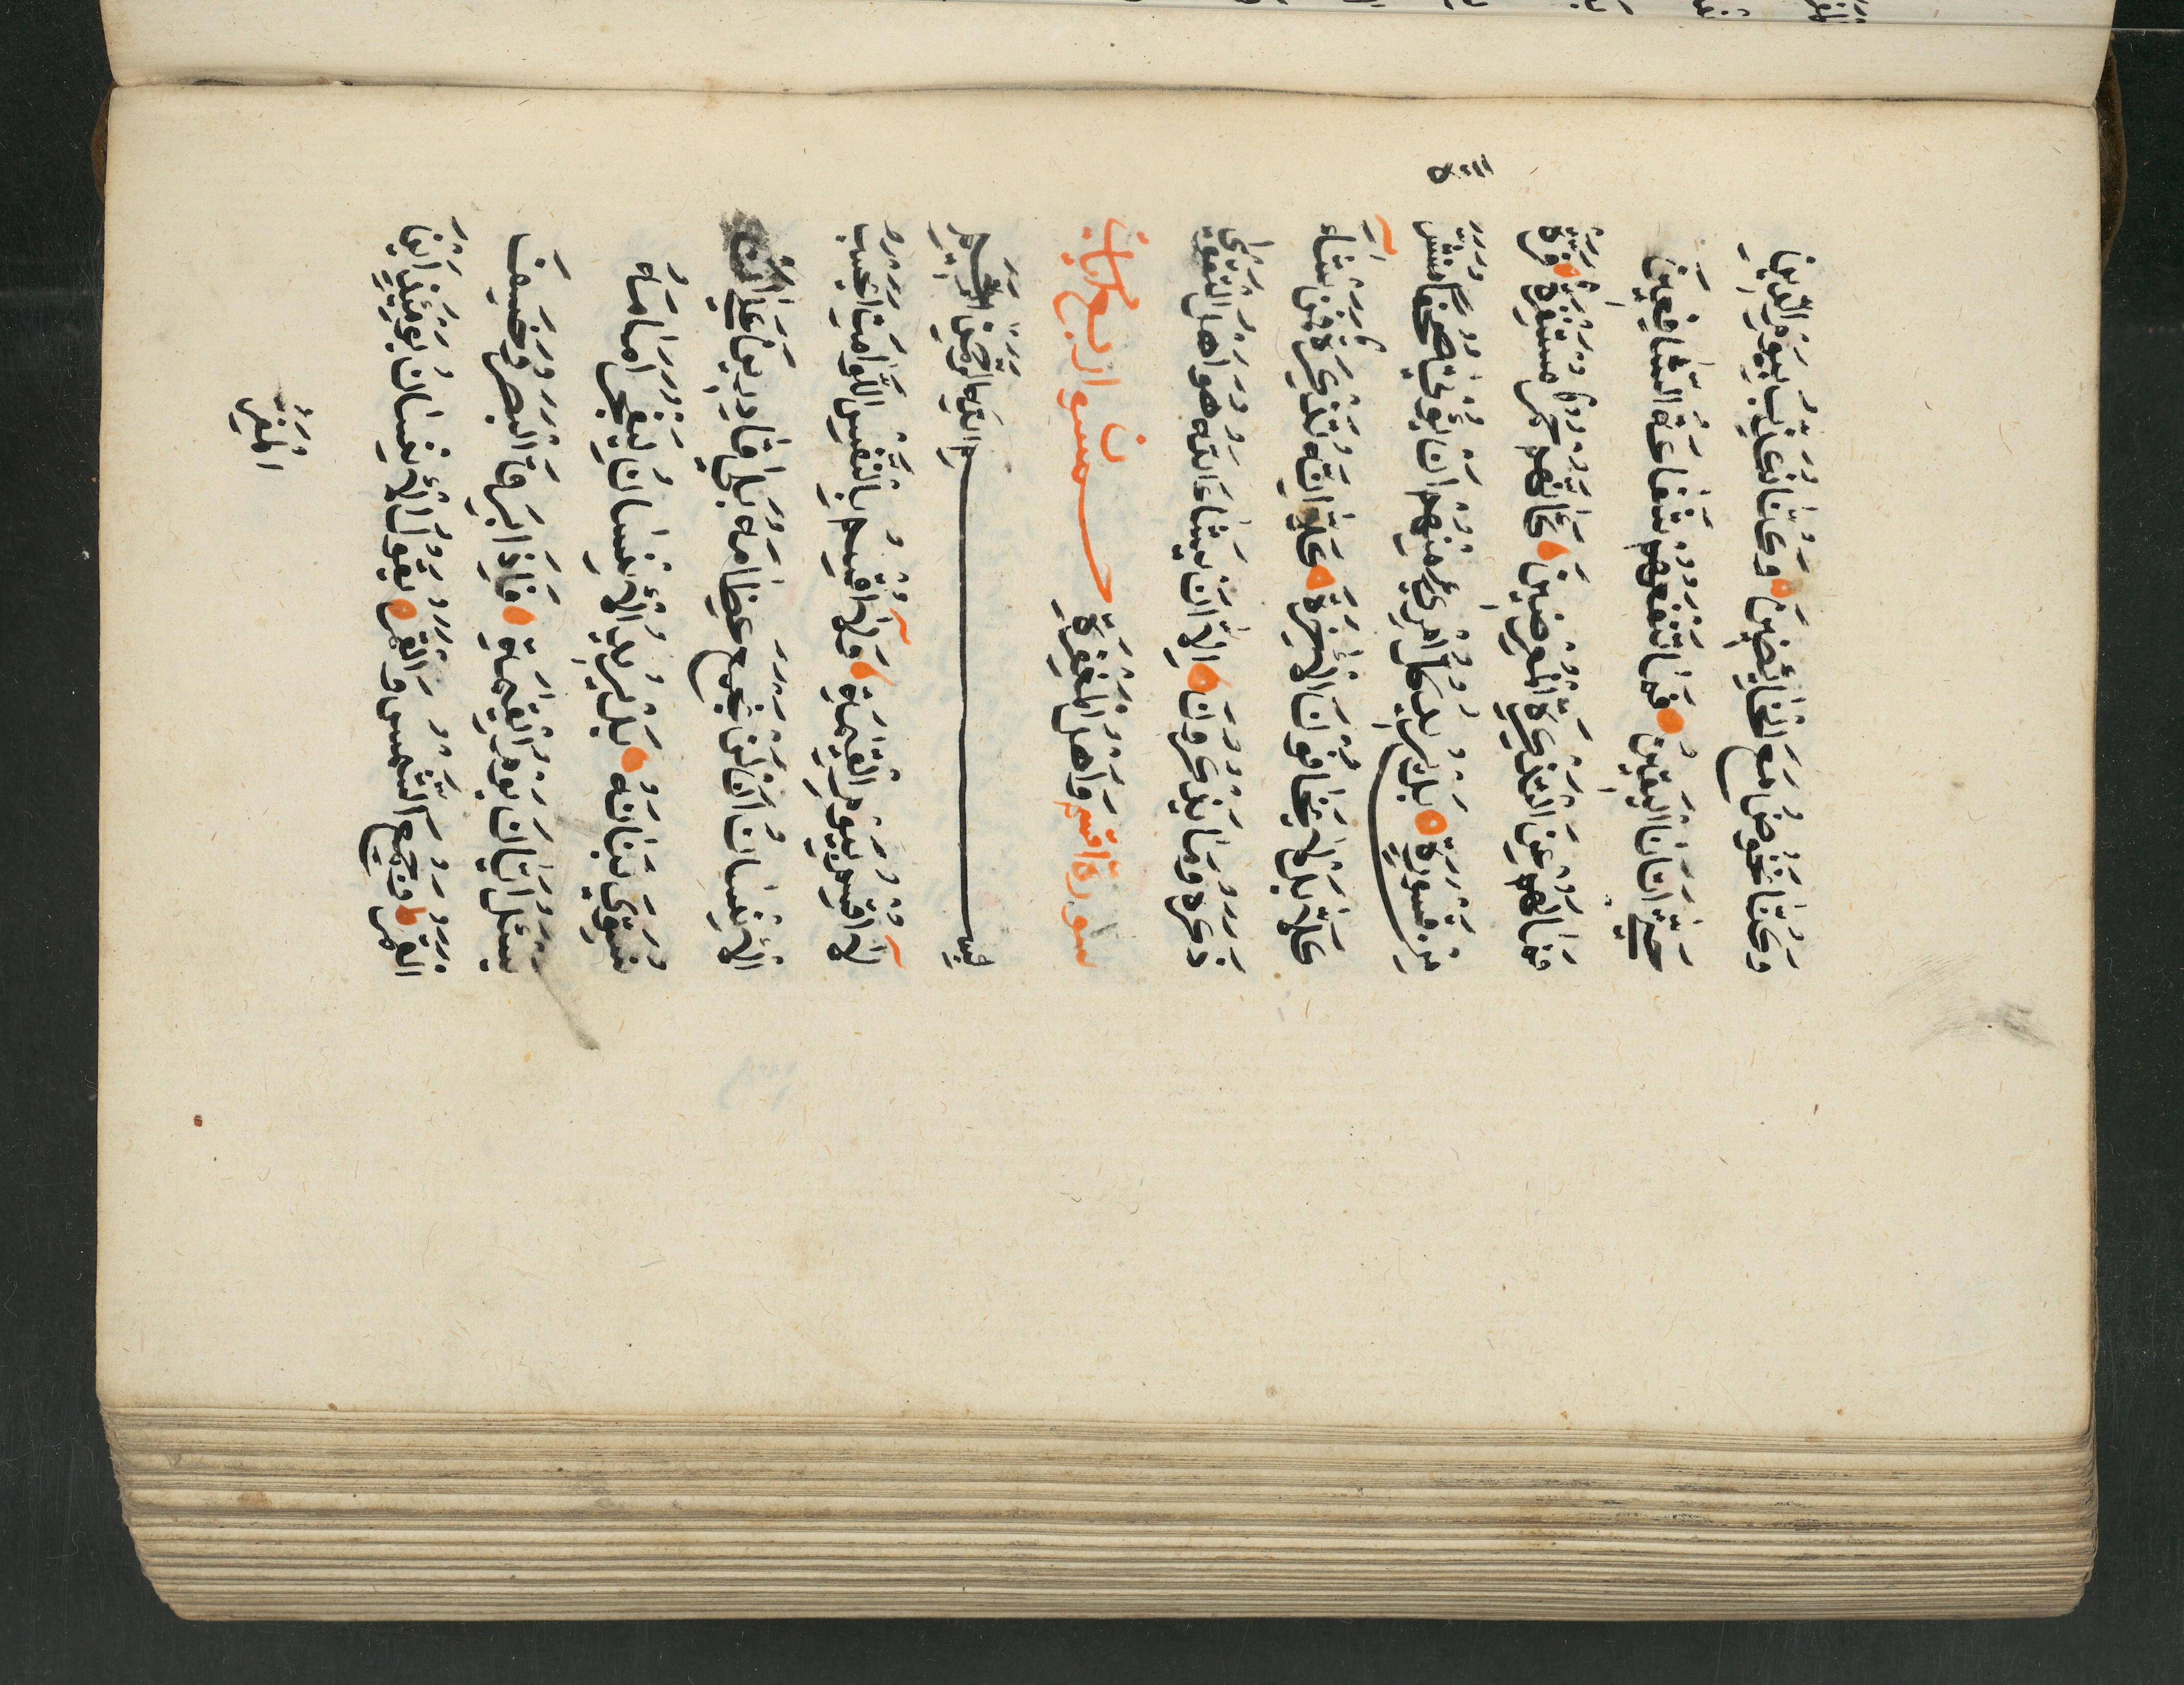 وَكُنَّا نَخُوضُ مَعَ الْخَائِضِينَ وَكُنَّا نُكَذِّبُ بِيَوْمِ الدِّينِ
حَتَّى اَتَانَا الْيَقِينُ فَمَا تَنْفَعُهُمْ شَفَاعَةُ الشَّافِعِينَ
فَمَا لَهُمْ عَنِ التَّذْكِرَةِ الْمُعْرِضِينَ كَاَنَّهُمْ حُمُرٌ مُسْتَنْفِرَةٌ فَرَّتْ
مِنْ قَسْوَرَةٍ بَلْ يُرِيدُ كُلُّ امْرِئٍ مِنْهُمْ اَنْ يُؤْتَى صُحُفًا مُنَشَّ
رَةً
كَلَّا بَلْ لَا يَخَافُونَ الْاٰخِرَةَ كَلَّا اِنَّهُ تَذْكِرَةٌ فَمَنْ شَاءَ
ذَكَرَهُ وَمَا يَذْكُرُونَ اِلَّا اَنْ يَشَاءَ اللّٰهُ هُوَ اَهْلُ التَّقْوٰى
وَاَهْلُ الْمَغْفِرَةِ
سورة اقسم خمسون اربع ايات
بسم اللّٰه الرحمن الرحيم
لَا اُقْسِمُ بِيَوْمِ الْقِيٰمَةِ وَلَا اُقْسِمُ بِالنَّفْسِ اللَّوَّامَةِ اَيَحْسَبُ
الْاِنْسَانُ اَنْ لَنْ نَجْمَعَ عِظَامَهُ بَلٰى قَادِرِينَ عَلٰى اَنْ
نُسَوِّيَ بَنَانَهُ بَلْ يُرِيدُ الْاِنْسَانُ لِيَفْجُرَ اَمَامَهُ
يَسْئَلُ اَيَّانَ يَوْمُ الْقِيٰمَةِ فَاِذَا بَرِقَ الْبَصَرُ وَخَسَفَ
الْقَمَرُ وَجُمِعَ الشَّمْسُ وَالْقَمَرُ يَقُولُ الْاِنْسَانُ يَوْمَئِذٍ اَيْنَ
الْمَفَرُّ